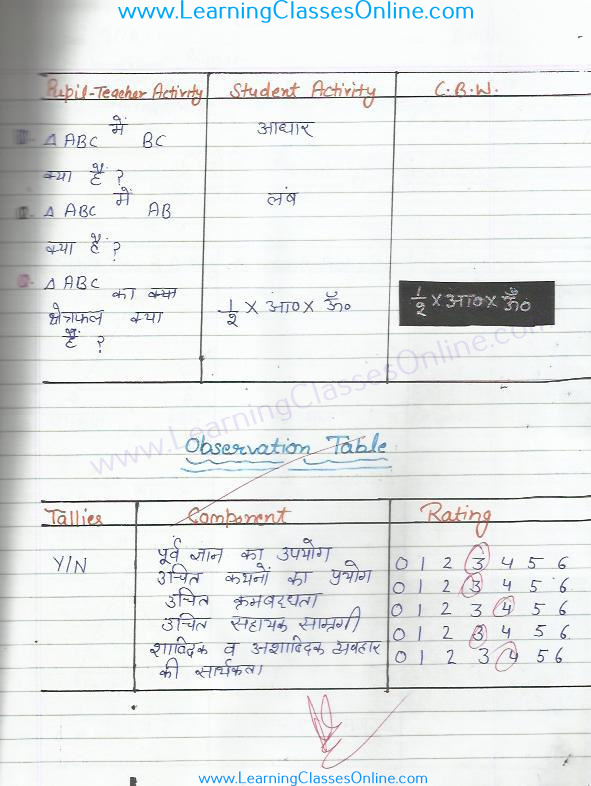 www.LearningClassesOnline.com
Pupil-Teacher Activity Student Activity C.B.W.
Δ ABC में BC आधार
क्या है ?
Δ ABC में AB लंब
क्या है ?
Δ ABC का क्या
क्षेत्रफल क्या 1/2 × आ० × ऊँ० 1/2 × आ० × ऊँ०
है ?
www.LearningClassesOnline.com
Observation Table
Tallies Component Rating
Y/N पूर्व ज्ञान का उपयोग 0 1 2 3 4 5 6
उचित कथनों का प्रयोग 0 1 2 3 4 5 6
उचित क्रमबद्धता 0 1 2 3 4 5 6
उचित सहायक सामग्री 0 1 2 3 4 5 6
शाब्दिक व अशाब्दिक व्यवहार 0 1 2 3 4 5 6
की सार्थकता
www.LearningClassesOnline.com